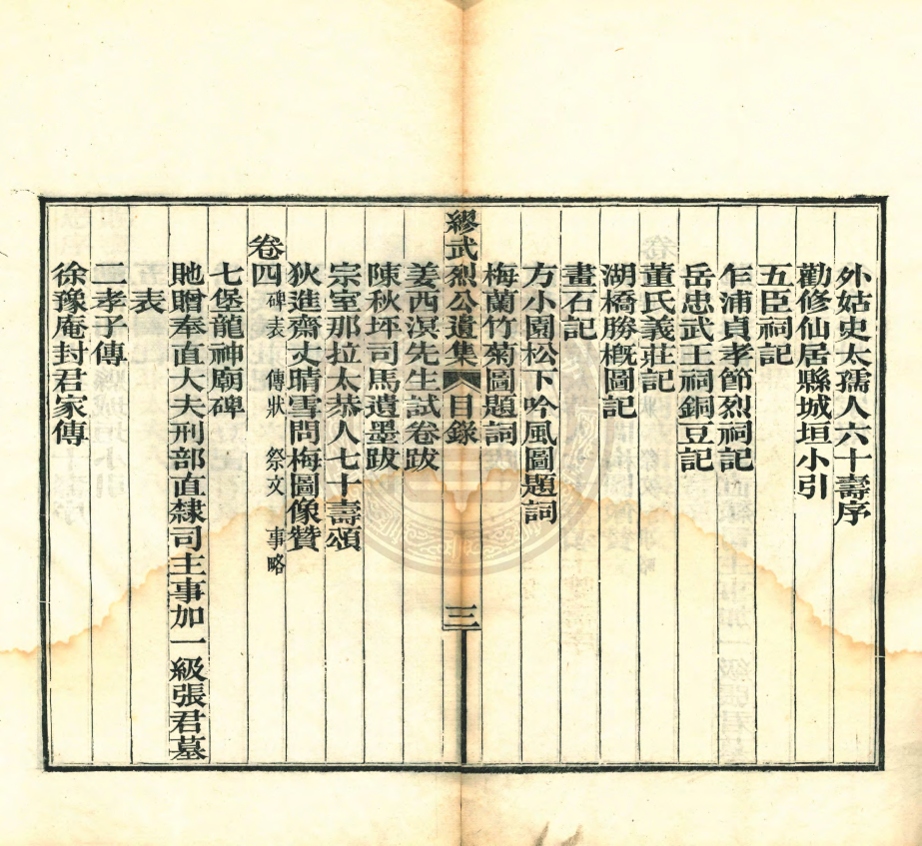 外姑史太孺人六十壽序
勸修仙居縣城垣小引
五臣祠記
乍浦貞孝節烈祠記
岳忠武王祠銅豆記
董氏義莊記
湖橋勝概圖記
畫石記
方小園松下吟風圖題詞
梅蘭竹菊圖題詞
繆武烈公遺集 目錄 三
姜西溟先生試卷跋
陳秋坪司馬遺墨跋
宗室那拉太恭人七十壽頌
狄進齋丈晴雪問梅圖像贊
卷四 碑表 傳狀 祭文 事略
七堡龍神廟碑
貤贈奉直大夫刑部直隸司主事加一級張君墓
表
二孝子傳
徐豫庵封君家傳